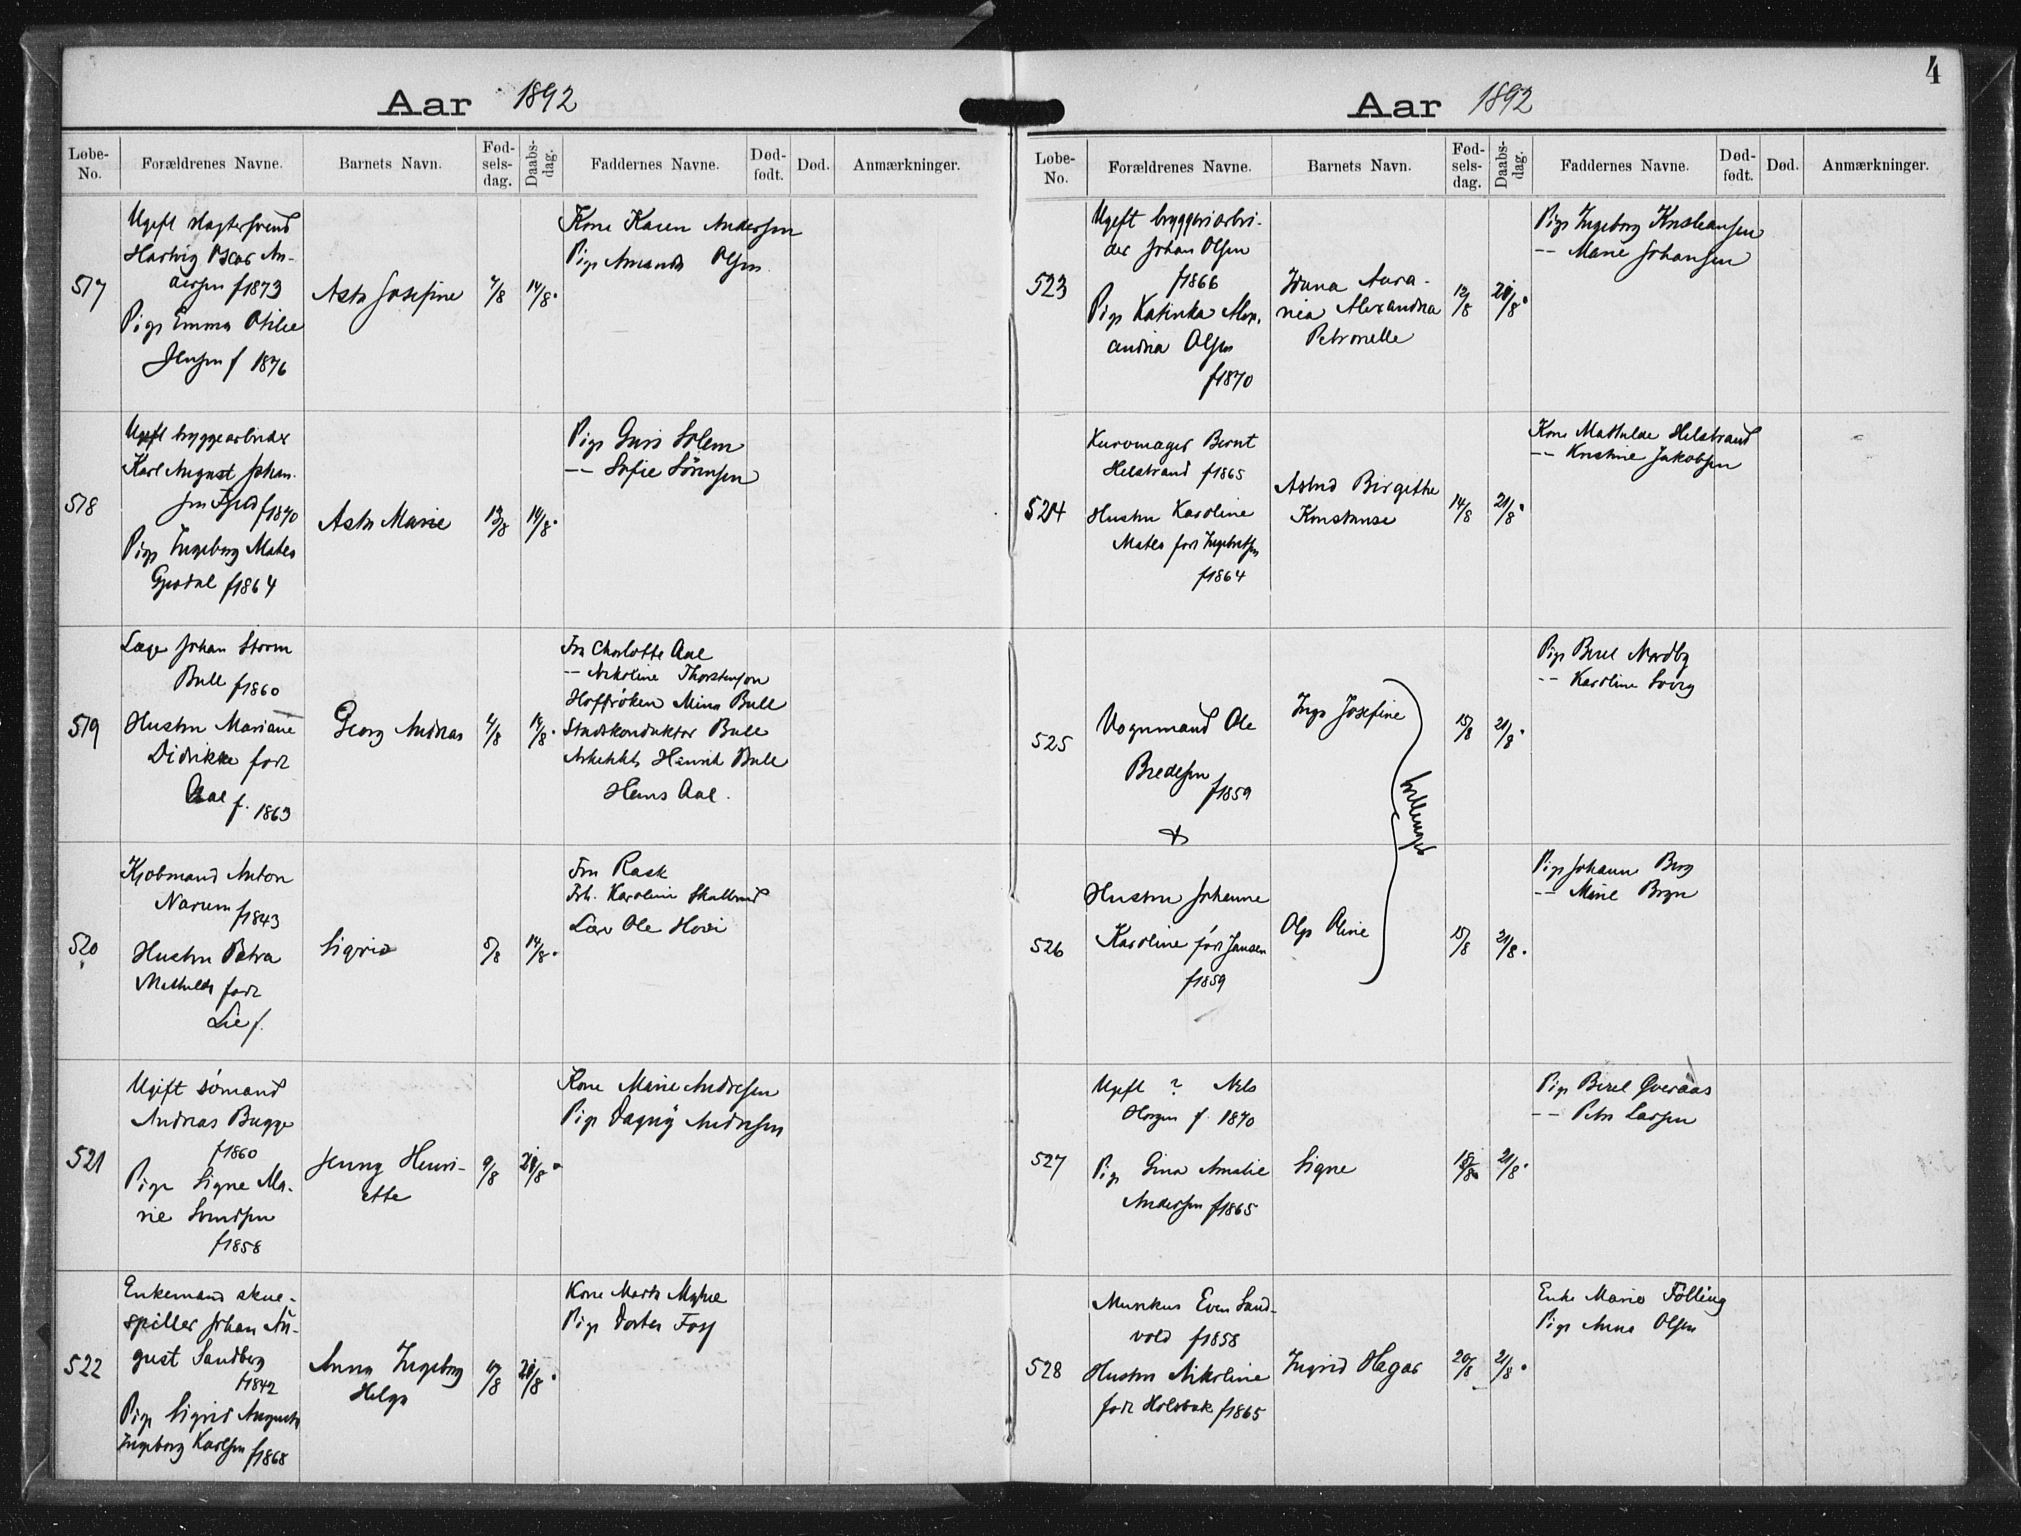 Aar 1892
Løbe-No. Forældrenes Navne. Barnets Navn. Fødselsdag. Daabsdag. Faddernes Navne. Dødfødt. Død. Anmærkninger.
517
Ugift slagtersvend
Hartvig Oscar An-
dersen f 1873
Pige Emma Otilie
Jensen f 1876
Asta Josefine
14/8
Kone Karen Andersen
Pige Amanda Olsen
518
Ugift bryggearbeider
Karl August Johan-
sen Fjeld f 1870
Pige Ingeborg Matea
f 1864
Asta Marie
14/8
Pige Guri Solem
-- Sofie Sörensen
519
Læge Johan Storm
Bull f 1860
Hustru Mariane
Didrikke født
Aal f. 1863
Georg Andreas
4/8
14/8
Fru Charlotte Aal
-- Nikoline Thorstenson
Hoffröken Mina Bull
Stadskonduktør Bull
Arkitekt Henrik Bull
Hans Aal.
520
Kjøbmand Anton
Narum f 1843
Hustru Petra
Mathilda født
Lie f.
Sigrid
5/8
14/8
Fru Rask
Frk. Karoline
Ole Hovi
521
Ugift sömand
Andreas Bugge
f 1860
Pige Signe Ma-
rie Svendsen
f 1858
Jenny Henri-
ette
9/8
21/8
Kone Marie Andresen
Pige Dagny Andresen
522
Enkemand skue-
spiller Johan Au-
gust Sandberg
f 1842
Pige Sigrid Augusta
Ingeborg Karlsen f 1868
Anna Ingeborg
Helga
21/8
Kone Marta Myhre
Pige Dortea Foss
4
Aar 1892
Løbe-No. Forældrenes Navne. Barnets Navn. Fødselsdag. Daabsdag. Faddernes Navne. Dødfødt. Død. Anmærkninger.
523
Ugift bryggeriarbei-
der Johan Olsen
f 1866
Pige Katinka Alex-
andria Olsen
f 1870
Alexandria
Petronelle
12/8
21/8
Pige Ingeborg Kristiansen
-- Marie Johansen
524
Kurvmager Bernt
Helstrand f 1865
Hustru Karoline
Matea født Ingebretsen
f 1864
Astrid Birgithe
Konstanse
14/8
21/8
Kone Mathilde Helstrand
-- Kristine Jakobsen
525
Vognmand Ole
Bredesen
f 1859
Inga Josefine
tvillinger
15/8
21/8
Pige Beret Nordby
-- Karoline
526
Hustru Johanne
Karoline født Jansen
f 1859
Olga Oline
15/8
21/8
Pige Johanne Berg
-- Marie Bryn
527
Ugift ? Nils
Horgen f. 1870
Pige Gina Amalie
Andersen f 1865
Signe
18/8
21/8
Pige Beret Överaas
-- Petra Larsen
528
Musikus Even Sand-
vold f 1858
Hustru Nikoline
født Holsbak f 1865
Ingrid Hagar
20/8
21/8
Enke Marie Fölling
Pige Anna Olsen